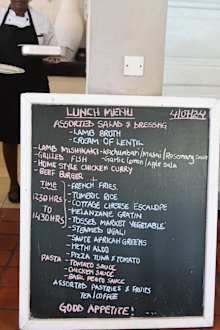 LUNCH MENU 4/07/24
ASSORTED SALAD & DRESSING
- LAMB BROTH
- CREAM OF LENTIL
- LAMB MISHIKAKI - Kachumbari/Mushi/Rosemary Sauce
- GRILLED FISH - Garlic Lemon/Aple Sala
- HOME STYLE CHICKEN CURRY
- BEEF BURGER +
TIME - FRENCH FRIES.
1230 HRS - TUMERIC RICE
TO - COTTAGE CHEESE ESCALOPE
1430 HRS - MELANZANE GRATIN
- TOSSED MARKET VEGETABLE
- STEAMED UGALI
- SAUTE AFRICAN GREENS
- METHI ALOO
- PIZZA TUNA & TOMATO
PASTA - TOMATO SAUCE
- CHICKEN SAUCE
- BASIL PESTO SAUCE
ASSORTED PASTRIES & FRUITS
TEA/COFFEE
GOOD APPETITE!